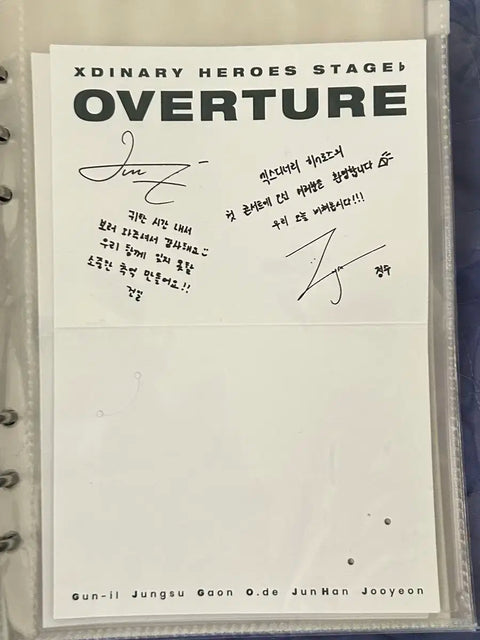 XDINARY HEROES STAGE♭
OVERTURE
귀한 시간 내서
보러 와주셔서 감사해요
우리 함께 잊지 못할
소중한 추억 만들어요!!
건일
엑스디너리 히어로즈의
첫 콘서트에 오신 여러분을 환영합니다
우리 오늘 미쳐봅시다!!!
정수
Gun-il Jungsu Gaon O.de JunHan Jooyeon